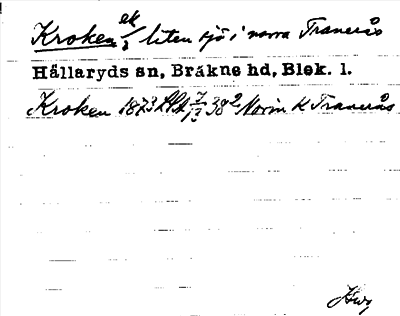 Kroken, liten sjö i norra Tranerås
Hällaryds sn, Bräkne hd, Blek. l.
Kroken 1873 38 Norin K Tranerås